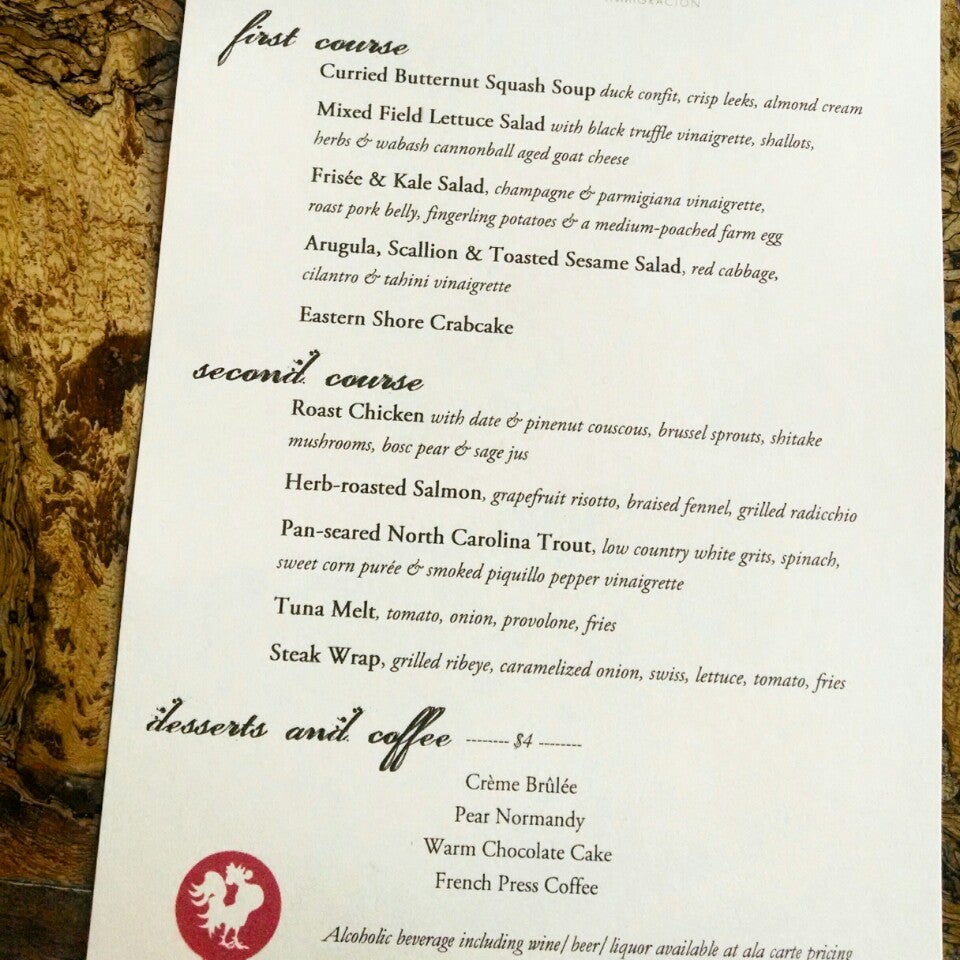 INMIGRACION
first course
Curried Butternut Squash Soup duck confit, crisp leeks, almond cream
Mixed Field Lettuce Salad with black truffle vinaigrette, shallots,
herbs & wabash cannonball aged goat cheese
Frisée & Kale Salad, champagne & parmigiana vinaigrette,
roast pork belly, fingerling potatoes & a medium-poached farm egg
Arugula, Scallion & Toasted Sesame Salad, red cabbage,
cilantro & tahini vinaigrette
Eastern Shore Crabcake
second course
Roast Chicken with date & pinenut couscous, brussel sprouts, shitake
mushrooms, bosc pear & sage jus
Herb-roasted Salmon, grapefruit risotto, braised fennel, grilled radicchio
Pan-seared North Carolina Trout, low country white grits, spinach,
sweet corn purée & smoked piquillo pepper vinaigrette
Tuna Melt, tomato, onion, provolone, fries
Steak Wrap, grilled ribeye, caramelized onion, swiss, lettuce, tomato, fries
desserts and coffee -------- $4 --------
Crème Brûlée
Pear Normandy
Warm Chocolate Cake
French Press Coffee
Alcoholic beverage including wine/ beer/ liquor available at ala carte pricing